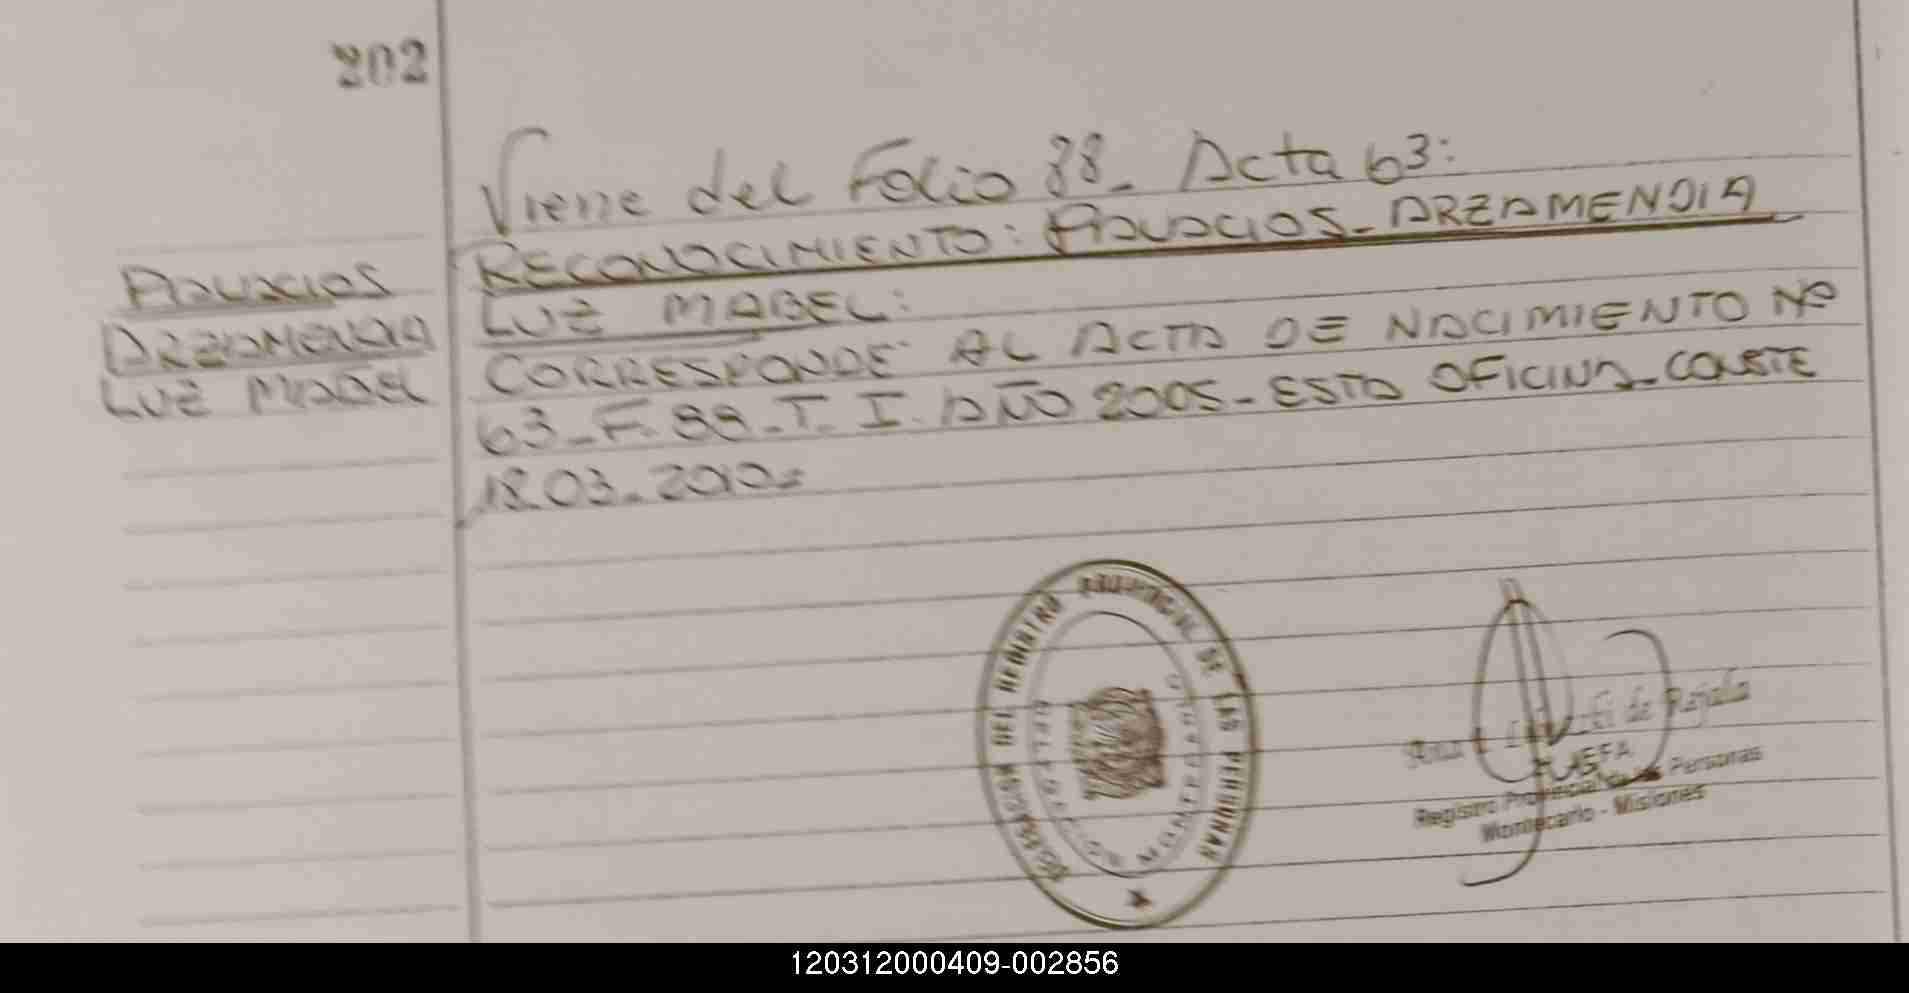 202
Viene del Folio 88_ Acta 63:
RECONOCIMIENTO: PALACIOS_ARZAMENDIA
LUZ MABEL:
CORRESPONDE AL ACTA DE NACIMIENTO Nº
63_F. 88_T. I. AÑO 2005_ESTA OFICINA_CONSTE
18.03.2010=
ARZAMENDIA
LUZ MABEL
DEL REGISTRO PROVINCIAL DE LAS PERSONAS
DELEGACION MONTECARLO
de Rajala
JEFA
Registro Provincial de las Personas
Montecarlo - Misiones
120312000409-002856